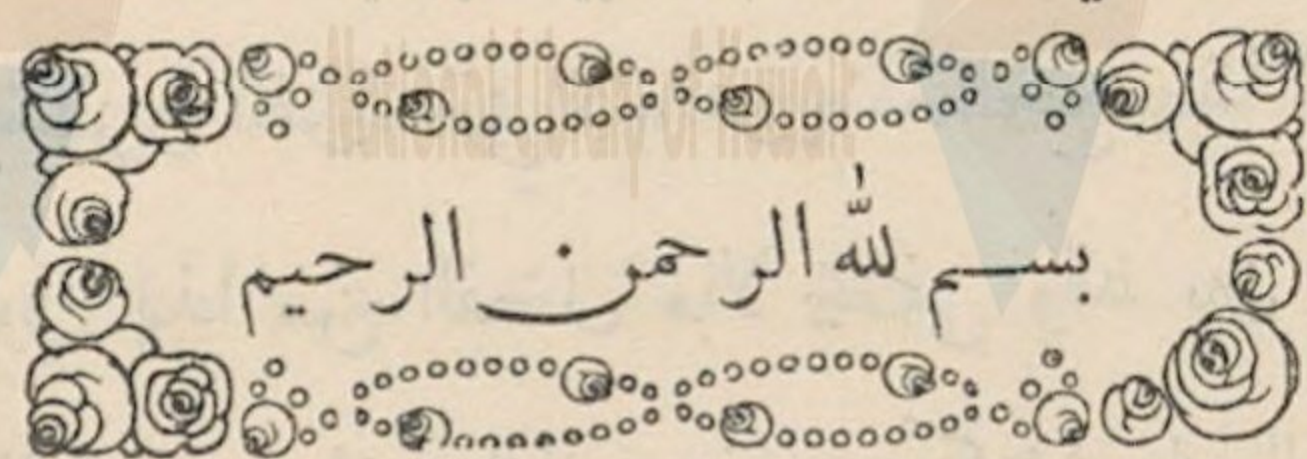 National Library of Kuwait
بسم لله الرحمن الرحيم